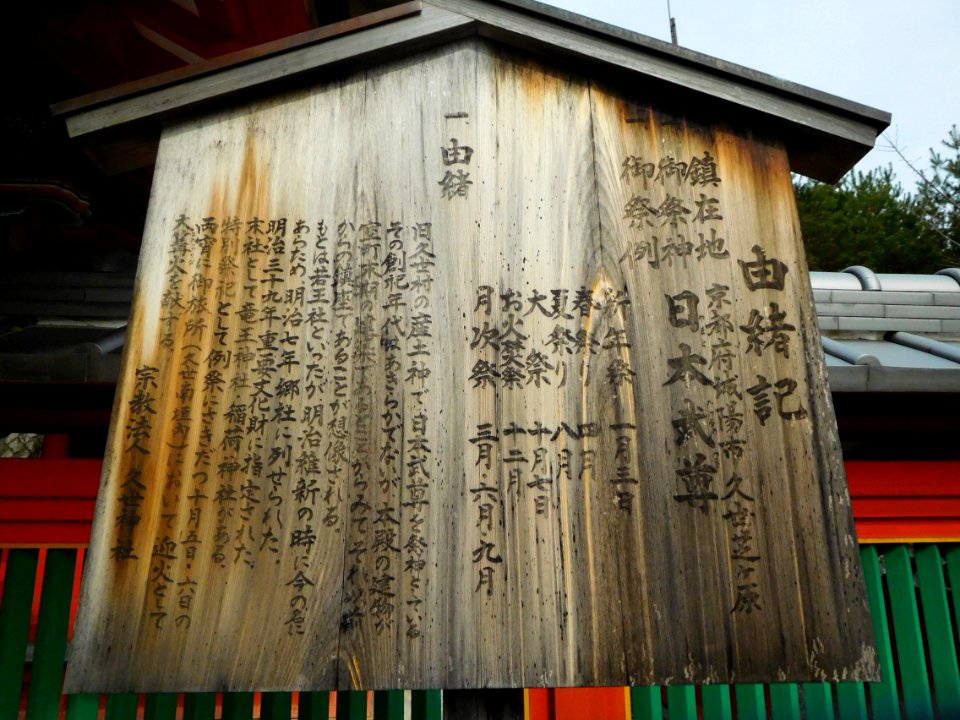 由緒記
鎮在地 京都府城陽市久世芝ヶ原
一 御祭神 日本武尊
一 御祭例
年祭 一月三日
春祭 四月
夏祭り 八月
大祭 十月七日
お火焚祭 十二月
月次祭 三月・六月・九月
一 由緒
旧久世村の産土神で、日本武尊を祭神としている
その創祀年代はあきらかでないが、本殿の建物が
室町末期の建築であることからみてそれ以前
からの鎮座であることが想像される。
もとは若王社といったが明治維新の時に今の名に
あらため、明治七年郷社に列せられた。
明治三十九年重要文化財に指定された。
末社として竜王神社、稲荷神社がある。
特別祭祀として例祭にさきだつ十月五日・六日の
両宵に御旅所(久世南垣内)において迎火として
大篝火を献する。
宗教法人 久世神社